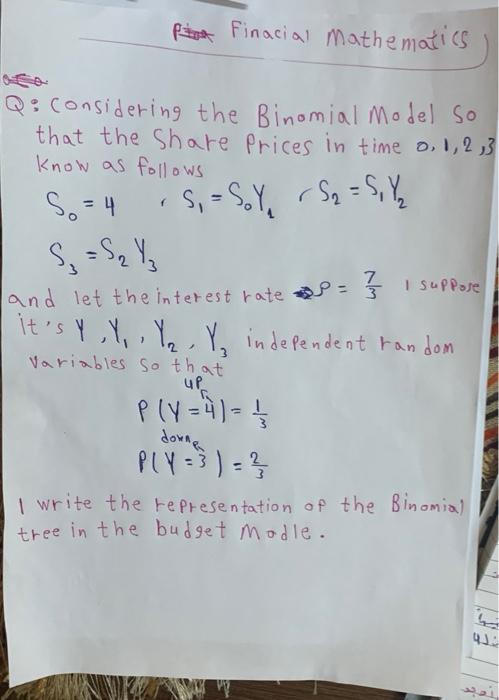 Finacial Mathematics
Q: Considering the Binomial Model So
that the Share Prices in time 0,1,2,3
know as follows
S₀ = 4 , S₁ = S₀Y₁ , S₂ = S₁Y₂
S₃ = S₂Y₃
and let the interest rate ρ = 7/3 I suppose
it's Y, Y₁, Y₂, Y₃ independent random
Variables so that
up
P(Y=4) = 1/3
down
P(Y=3) = 2/3
I write the representation of the Binomial
tree in the budget Modle.